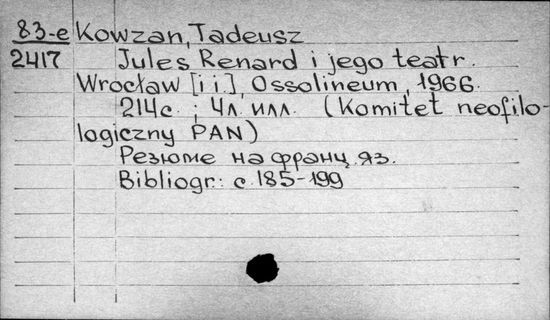 83-е Kowzan, Tadeusz
2417 Jules Renard i jego teatr.
Wrocław [i i], Ossolineum, 1966.
214с.; 4л. илл. (Komitet neofilo-
logiczny PAN)
Резюме на франц. яз.
Bibliogr.: с.185-199